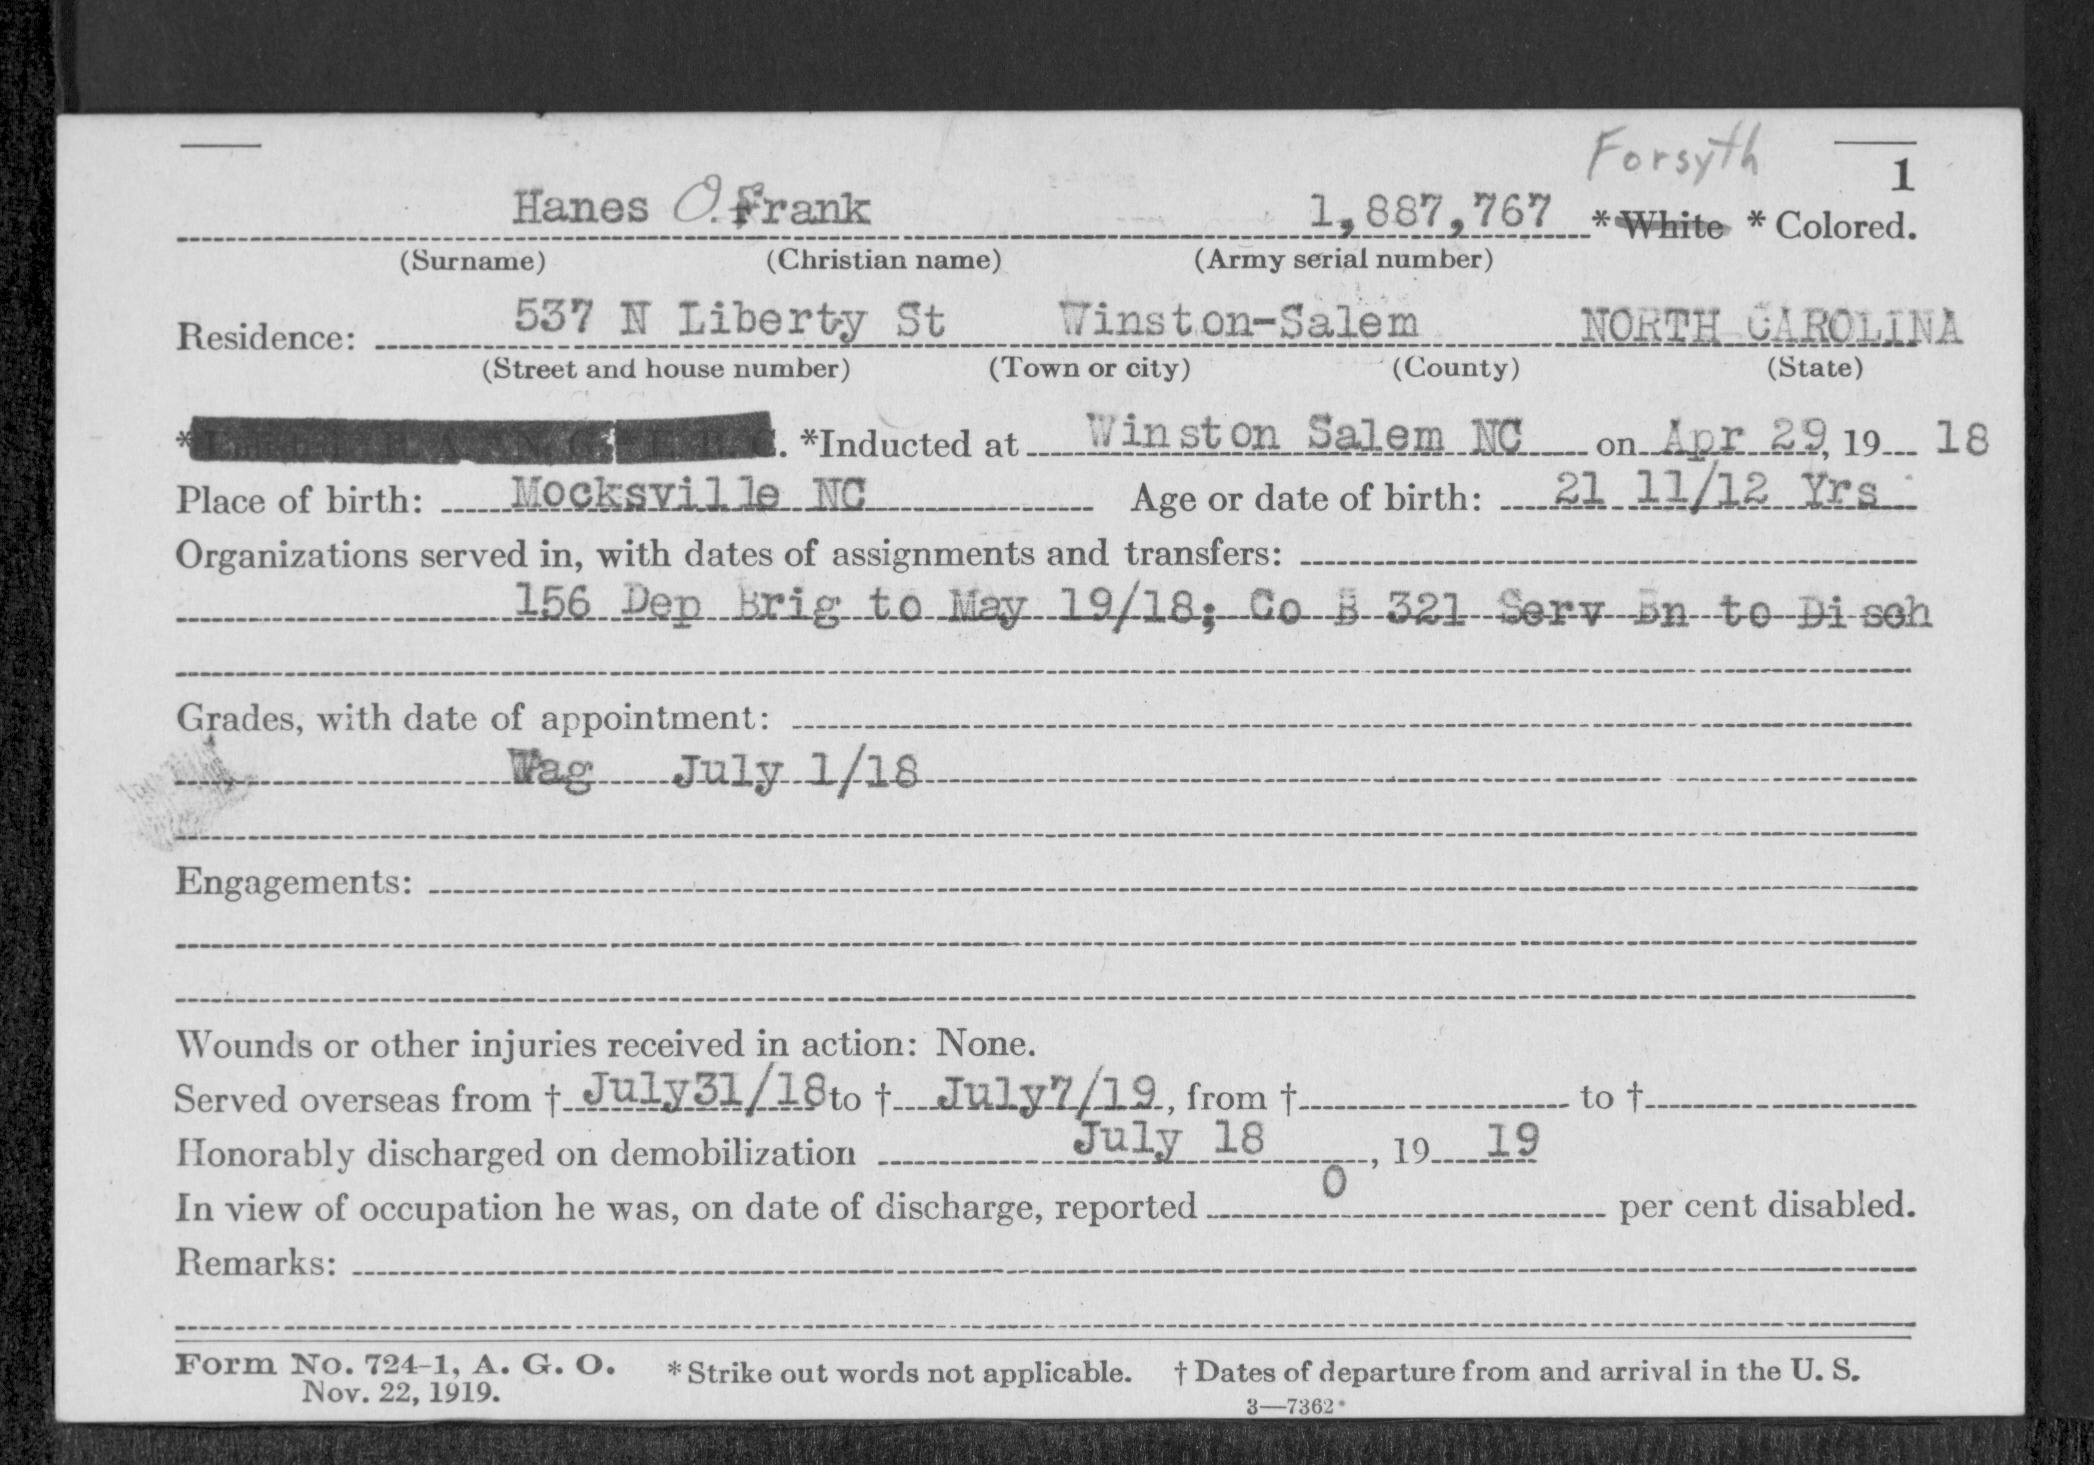 Forsyth
1
Hanes O. Frank 1,887,767 *White *Colored.
(Surname) (Christian name) (Army serial number)
Residence: 537 N Liberty St Winston-Salem NORTH CAROLINA
(Street and house number) (Town or city) (County) (State)
* . *Inducted at Winston Salem NC on Apr 29, 19 18
Place of birth: Mocksville NC Age or date of birth: 21 11/12 Yrs
Organizations served in, with dates of assignments and transfers:
156 Dep Brig to May 19/18; Co B 321 Serv Bn to Disch
Grades, with date of appointment:
Wag July 1/18
Engagements:
Wounds or other injuries received in action: None.
Served overseas from † July31/18 to † July7/19, from † to †
Honorably discharged on demobilization July 18, 19 19
In view of occupation he was, on date of discharge, reported 0 per cent disabled.
Remarks:
Form No. 724-1, A. G. O. *Strike out words not applicable. † Dates of departure from and arrival in the U. S.
Nov. 22, 1919.
3—7362